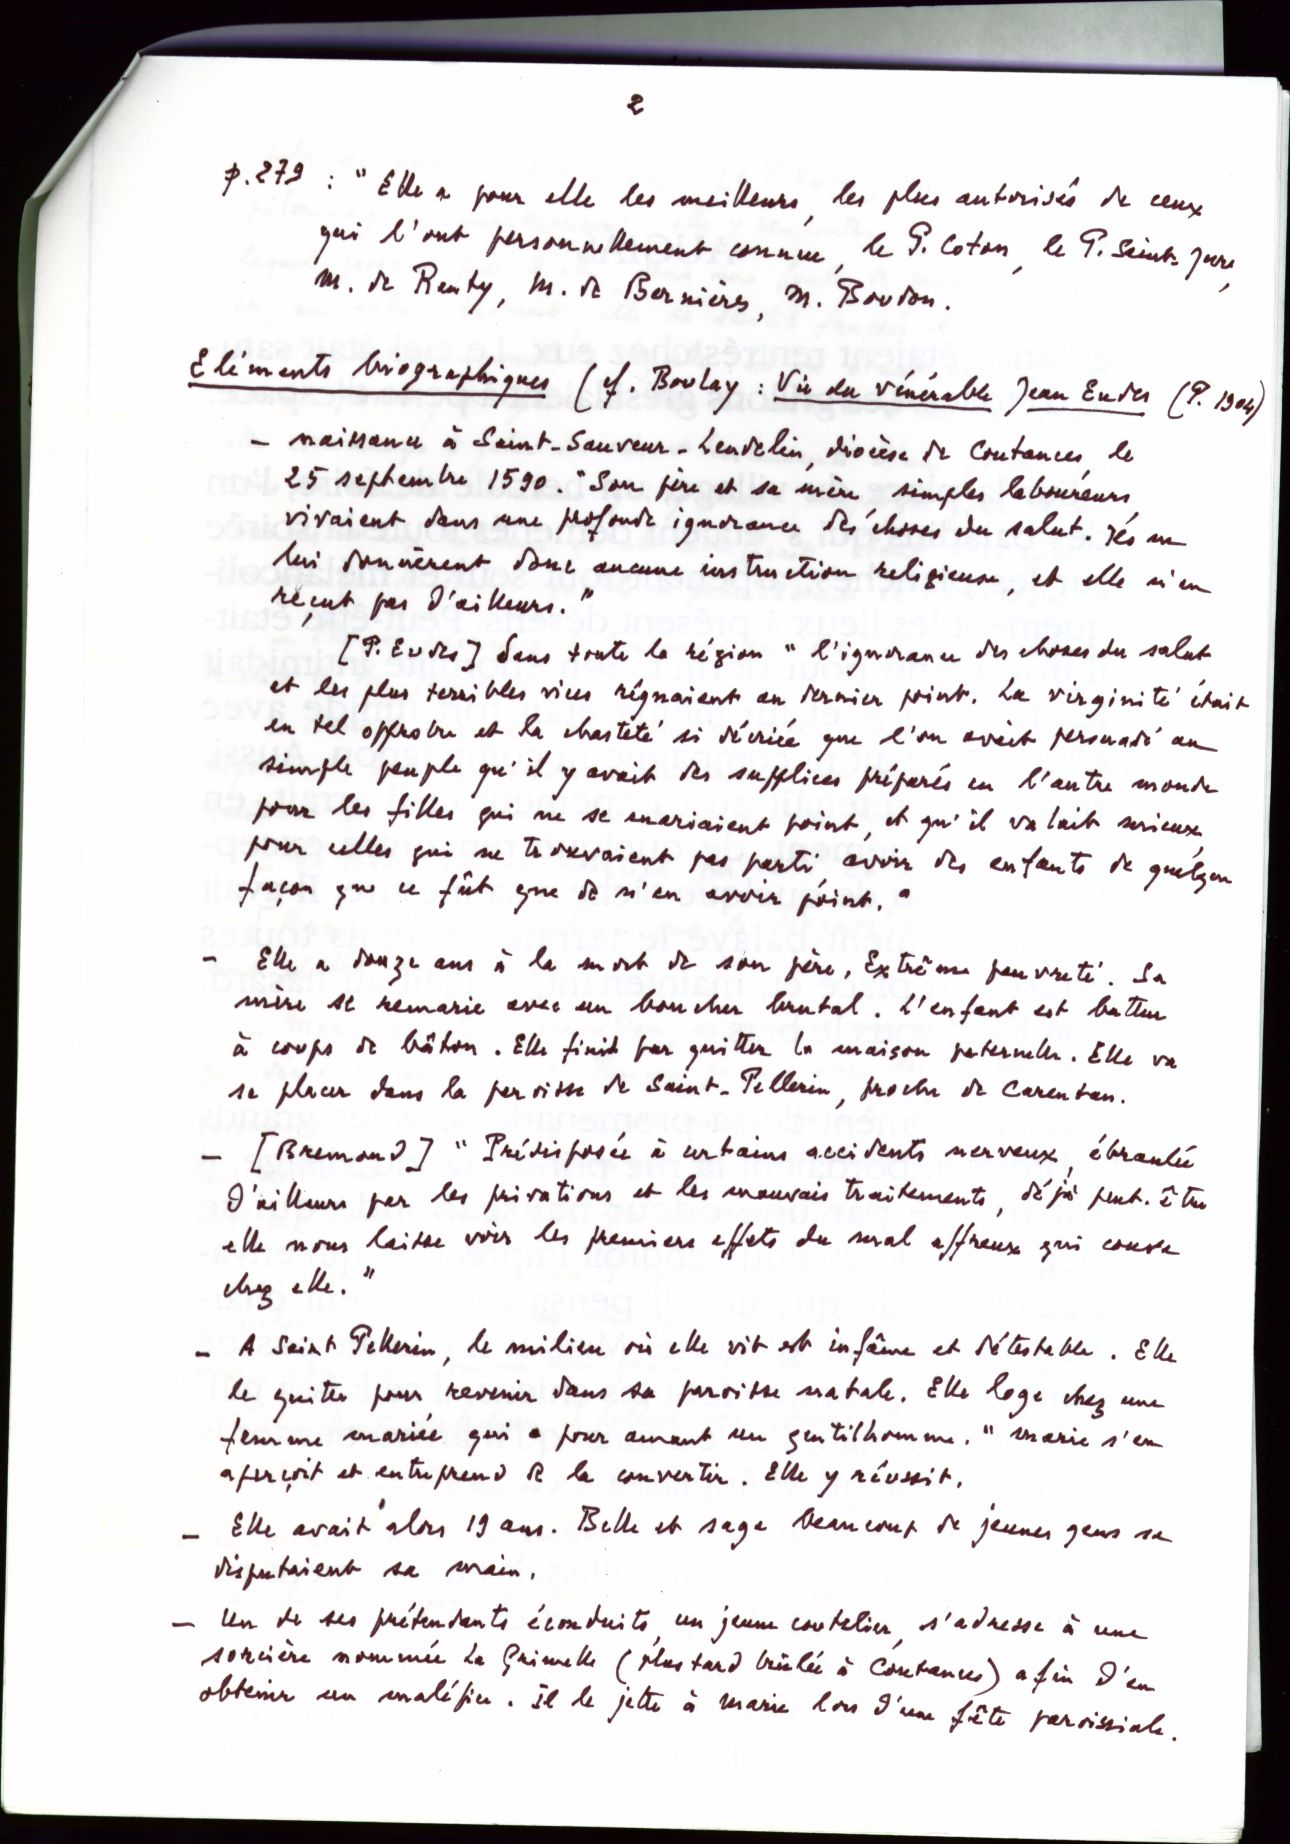 2
p. 279 : " Elle a pour elle les meilleurs, les plus autorisés de ceux
qui l'ont personnellement connue, le P. Coton, le P. Saint-Jure,
M. de Renty, M. de Bernières, M. Boudon.
Eléments biographiques (cf. Boulay : Vie du vénérable Jean Eudes (P. 1904)
– naissance à Saint-Sauveur-Lendelin, diocèse de Coutances, le
25 septembre 1590. "Son père et sa mère simples laboureurs,
vivaient dans une profonde ignorance des choses du salut. Ils ne
lui donnèrent donc aucune instruction religieuse, et elle n'en
reçut pas d'ailleurs."
[P. Eudes] dans toute la région " l'ignorance des choses du salut
et les plus terribles vices régnaient au dernier point. La virginité était
en tel opprobre et la chasteté si décriée que l'on avait persuadé au
simple peuple qu'il y avait des supplices préparés en l'autre monde
pour les filles qui ne se mariaient point, et qu'il valait mieux,
pour celles qui ne trouvaient pas parti, avoir des enfants de quelque
façon que ce fût que de n'en avoir point."
– Elle a douze ans à la mort de son père. Extrême pauvreté. Sa
mère se remarie avec un boucher brutal. L'enfant est battue
à coups de bâton. Elle finit par quitter la maison paternelle. Elle va
se placer dans la paroisse de Saint-Pellerin, proche de Carentan.
– [Bremond] " Prédisposée à certains accidents nerveux, ébranlée
d'ailleurs par les privations et les mauvais traitements, déjà peut-être
elle nous laisse voir les premiers effets du mal affreux qui couve
chez elle."
– A Saint Pellerin, le milieu où elle vit est infâme et détestable. Elle
le quitte pour revenir dans sa paroisse natale. Elle loge chez une
femme mariée qui a pour amant un gentilhomme. " Marie s'en
aperçoit et entreprend de la convertir. Elle y réussit.
– Elle avait" alors 19 ans. Belle et sage beaucoup de jeunes gens se
disputaient sa main.
– Un de ses prétendants éconduits, un jeune coutelier, s'adresse à une
sorcière nommée La Grimelle (plus tard brûlée à Coutances) afin d'en
obtenir un maléfice. Il le jette à Marie lors d'une fête paroissiale.